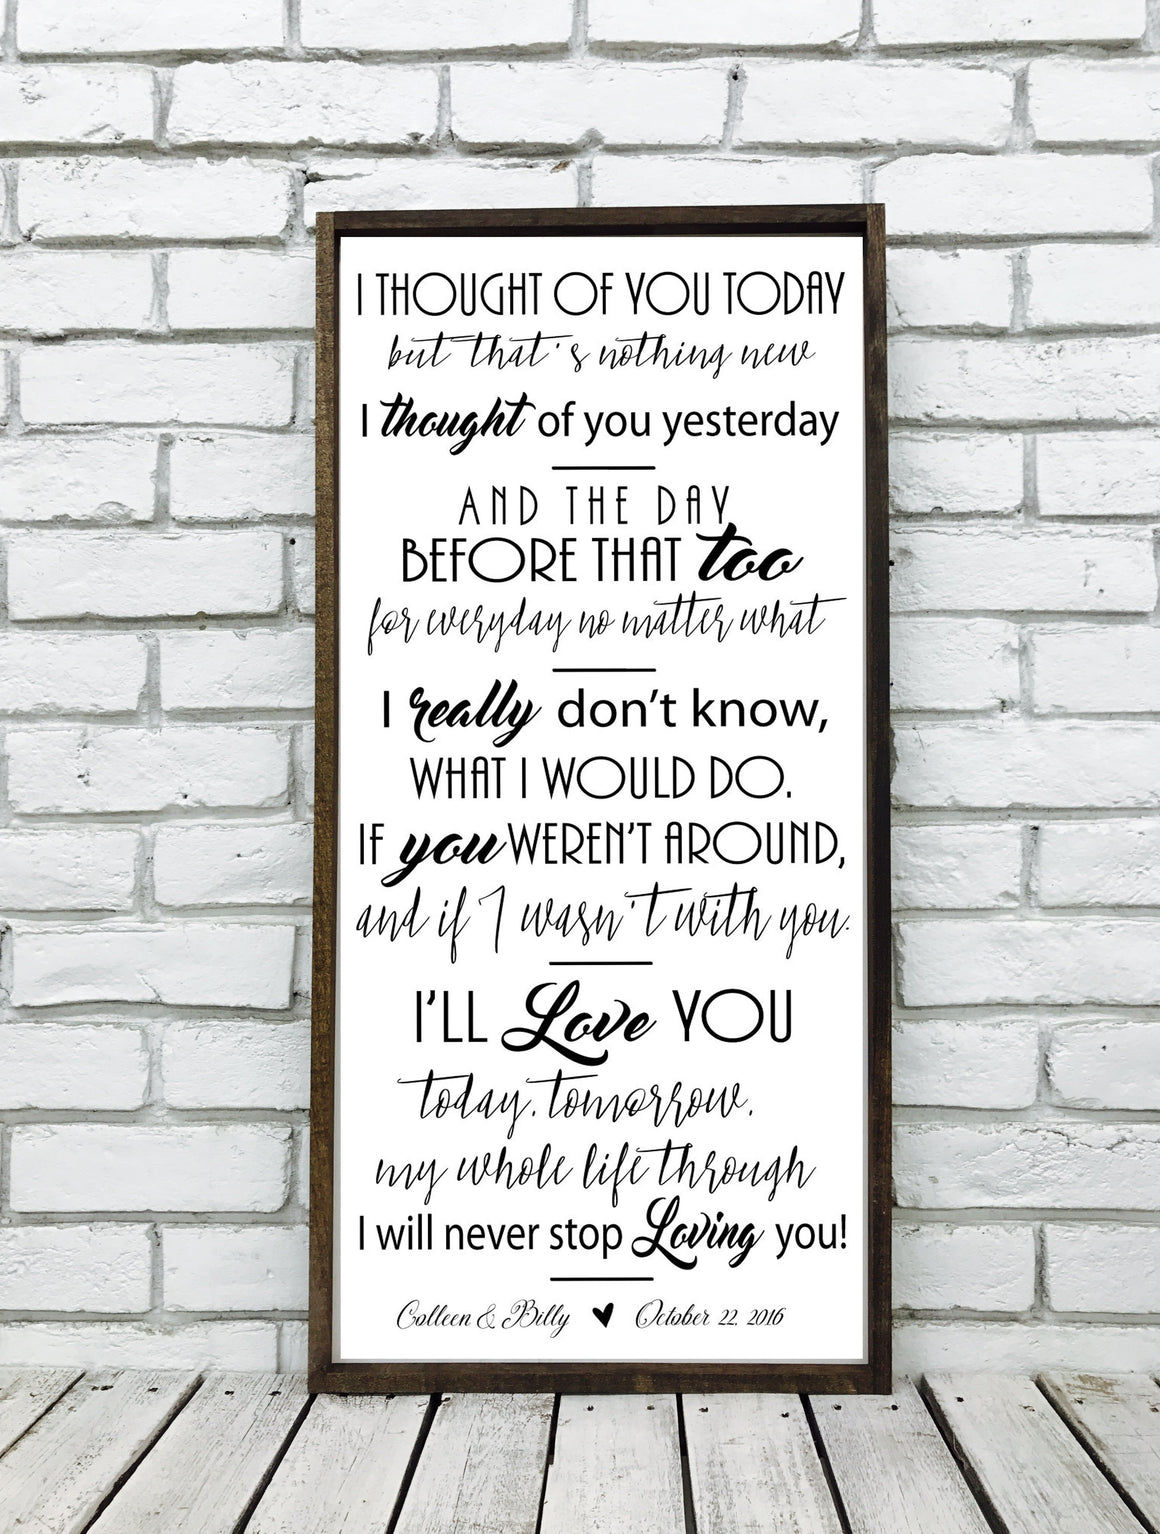 I THOUGHT OF YOU TODAY
but that's nothing new
I thought of you yesterday
AND THE DAY
BEFORE THAT too
for everyday no matter what
I really don't know,
WHAT I WOULD DO.
IF you WEREN'T AROUND,
and if I wasn't with you.
I'LL Love YOU
today, tomorrow,
my whole life through
I will never stop Loving you!
Colleen & Billy ♥ October 22, 2016